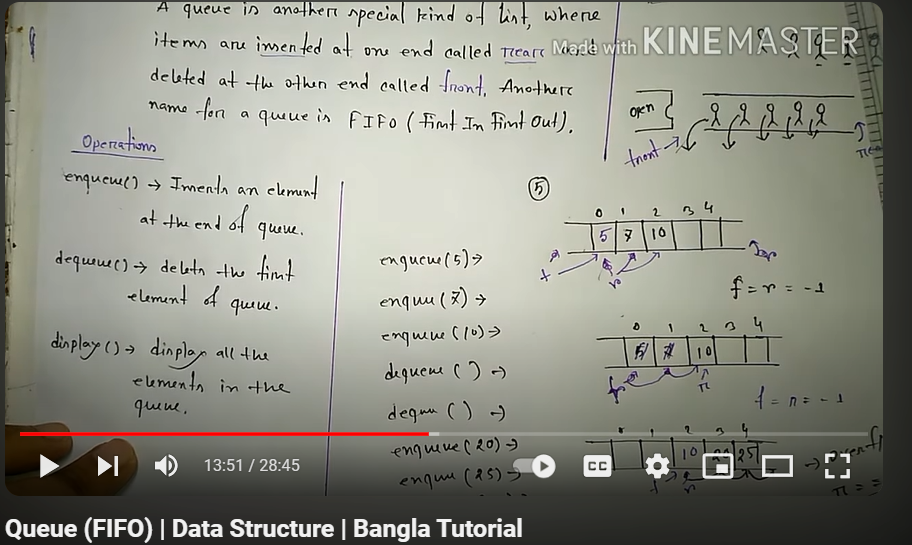 A queue is another special kind of list, where
items are inserted at one end called rear and
deleted at the other end called front. Another
name for a queue is FIFO (First In First Out).
Made with KINEMASTER
open
front
Operations
enqueue() → Inserts an element
at the end of queue.
dequeue() → delets the first
element of queue.
display() → display all the
elements in the
queue.
5
enqueue(5)→
enquu(7)→
enqueue(10)→
dequeue( )→
dequu( )→
enqueue(20)→
enquu(25)→
0 1 2 3 4
5 7 10
f = r = -1
0 1 2 3 4
5 7 10
f = r = -1
2 3 4
10 20 25
13:51 / 28:45
CC
Queue (FIFO) | Data Structure | Bangla Tutorial